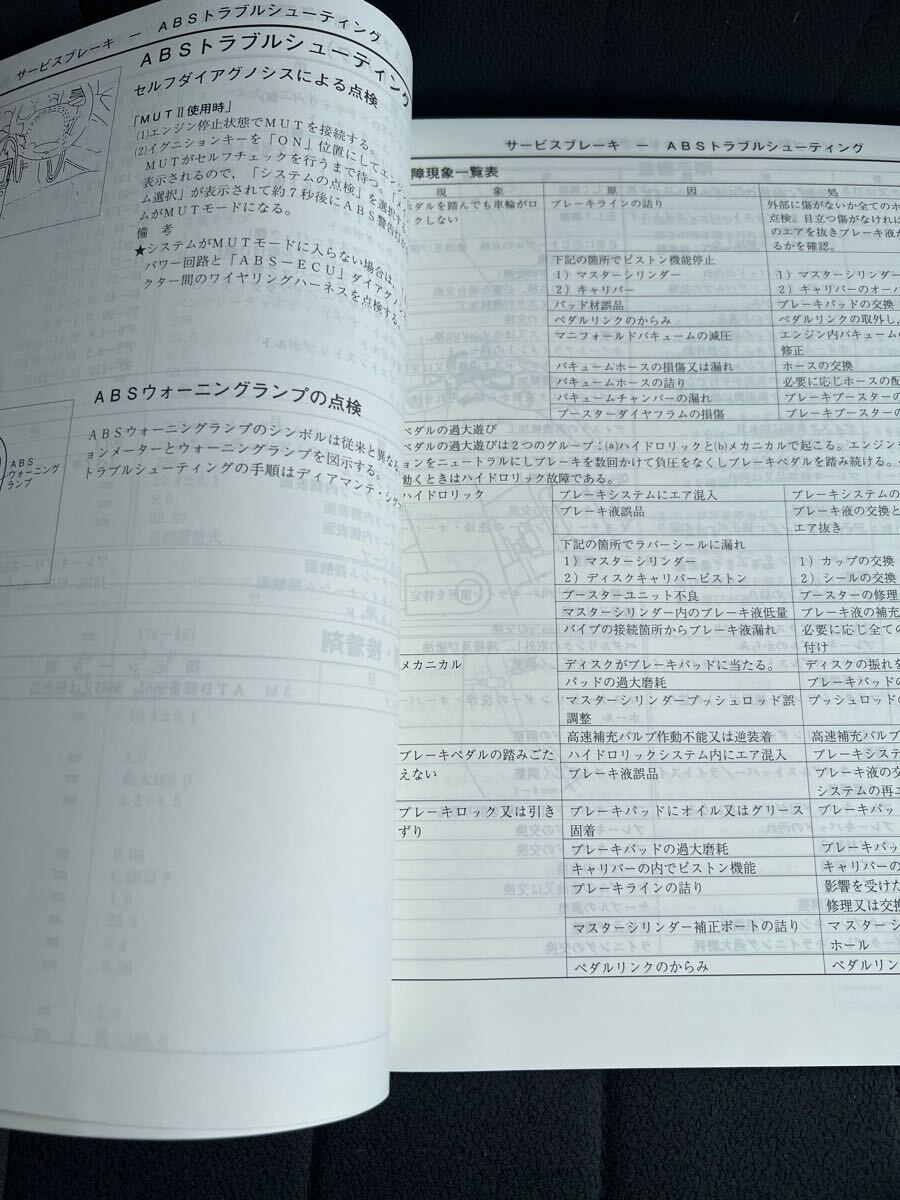 サービスブレーキ － ＡＢＳトラブルシューティング
ＡＢＳトラブルシューティング
セルフダイアグノシスによる点検
「ＭＵＴⅡ使用時」
(1)エンジン停止状態でＭＵＴを接続する。
(2)イグニションキーを「ＯＮ」位置にして
ＭＵＴがセルフチェックを行うまで待つ。
表示されるので、「システムの点検」を選択する
ム選択」が表示されて約７秒後にＡＢＳ警告灯
ムがＭＵＴモードになる。
備 考
★システムがＭＵＴモードに入らない場合は、
パワー回路と「ＡＢＳ－ＥＣＵ」ダイアグノ
クター間のワイヤリングハーネスを点検する。
ＡＢＳウォーニングランプの点検
ＡＢＳウォーニングランプのシンボルは従来と異なる
ョンメーターとウォーニングランプを図示する。
トラブルシューティングの手順はディアマンテ・シグマ
ＡＢＳ
ウォーニング
ランプ
サービスブレーキ － ＡＢＳトラブルシューティング
障現象一覧表
現 象 原 因 処
ペダルを踏んでも車輪がロ ブレーキラインの詰り 外部に傷がないか全てのホ
ックしない 点検。目立つ傷がなければ
のエアを抜きブレーキ液が
るかを確認。
下記の箇所でピストン機能停止
１）マスターシリンダー １）マスターシリンダー
２）キャリパー ２）キャリパーのオーバ
パッド材誤品 ブレーキパッドの交換
ペダルリンクのからみ ペダルリンクの取外し、
マニフォールドバキュームの減圧 エンジン内バキュームの
修正
バキュームホースの損傷又は漏れ ホースの交換
バキュームホースの詰り 必要に応じホースの配
バキュームチャンバーの漏れ ブレーキブースターの
ブースターダイヤフラムの損傷 ブレーキブースターの
ペダルの過大遊び
ペダルの過大遊びは２つのグループ；(a)ハイドロリックと(b)メカニカルで起こる。エンジンを
ョンをニュートラルにしブレーキを数回かけて負圧をなくしブレーキペダルを踏み続ける。
動くときはハイドロリック故障である。
ハイドロリック ブレーキシステムにエア混入 ブレーキシステムの
ブレーキ液誤品 ブレーキ液の交換と
エア抜き
下記の箇所でラバーシールに漏れ
１）マスターシリンダー １）カップの交換
２）ディスクキャリパーピストン ２）シールの交換
ブースターユニット不良 ブースターの修理
マスターシリンダー内のブレーキ液低量 ブレーキ液の補充
パイプの接続箇所からブレーキ液漏れ 必要に応じ全ての
付け
メカニカル ディスクがブレーキパッドに当たる。 ディスクの振れを
パッドの過大磨耗 ブレーキパッドの
マスターシリンダープッシュロッド誤 プッシュロッドの
調整
高速補充バルブ作動不能又は逆装着 高速補充バルブ
ブレーキペダルの踏みごた ハイドロリックシステム内にエア混入 ブレーキシステ
えない ブレーキ液誤品 ブレーキ液の交
システムの再エ
ブレーキロック又は引き ブレーキパッドにオイル又はグリース ブレーキパッ
ずり 固着
ブレーキパッドの過大磨耗 ブレーキパッ
キャリパーの内でピストン機能 キャリパーの
ブレーキラインの詰り 影響を受けた
修理又は交換
マスターシリンダー補正ポートの詰り マスターシ
ホール
ペダルリンクのからみ ペダルリン